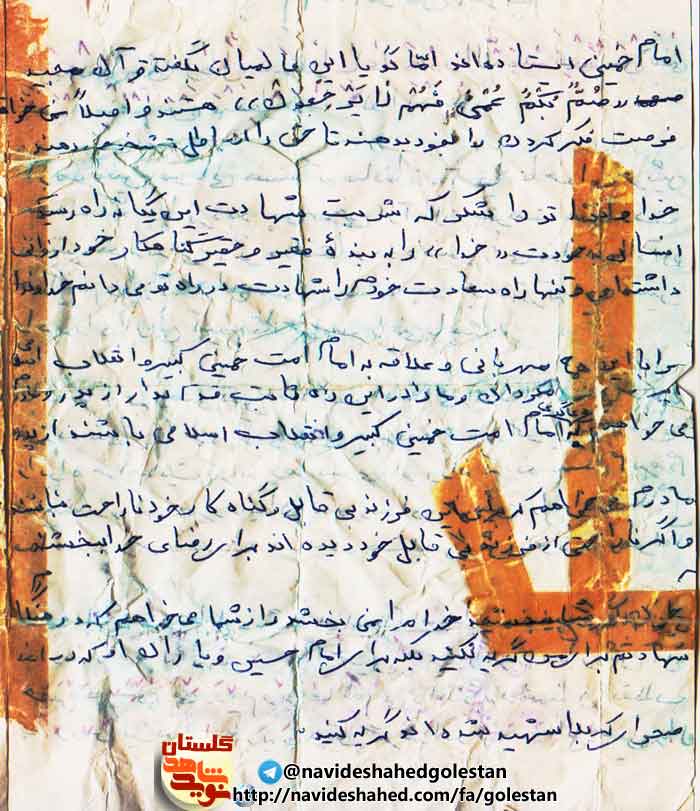 امام خمینی ایستاده‌اند امّا گویا این عالمیان بگفته قرآن مجید
«صُمٌ بُکْمٌ عُمْیٌ فَهُم لا یَرجِعُون» هستند و اصلاً نمی خواهند
فرصت فکر کردن را بخود بدهند تا حق را از باطل تشخیص دهند
خداوندا تو را شکر که شربت شهادت این یگانه راه رسیدن
انسان به خودت «خدا» را به بندهٔ فقیر و حقیر گناهکار خود ارزانی
داشته‌ای و تنها راه سعادت خودم را شهادت در راه تو می دانم خداوندا
مرا با این مهربانی و علاقه به امام امت خمینی کبیر و انقلاب
و ما را در این راه ثابت قدم بدار از پدر و مادرم
می خواهم که امام امت خمینی کبیر و انقلاب اسلامی باشند
مادرم می خواهم که از این فرزند بی قابل و گناه کار خود ناراحت نباشند
و اگر ناراحتی از فرزند بی قابل خود دیده اند برای رضای خدا ببخشند
خدا مرا نمی بخشد و از شما می خواهم که در هنگام
شهادتم برای من گریه نکنید بلکه برای امام حسین و یاران او که در
صحرای کربلا شهید شده اند گریه کنید
گلستان
نوید شاهد
@navideshahedgolestan
http://navideshahed.com/fa/golestan